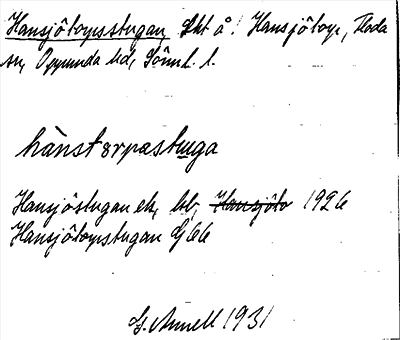 Hansjötorpsstugan, Lht å: Hansjötorp, Floda
sn, Oppunda hd, Sörml. l.
hànstɘrpæstuga
Hansjöstugan ek, kb, Hansjöto 1926
Hansjötorpstugan Gj 66
G. Amell 1931